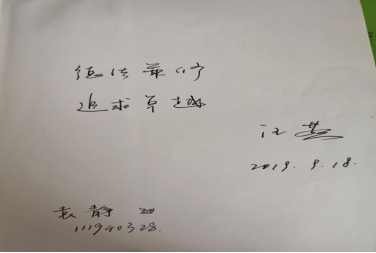 德法兼修
追求卓越
汪
2019.9.18.
袁静
111940328.